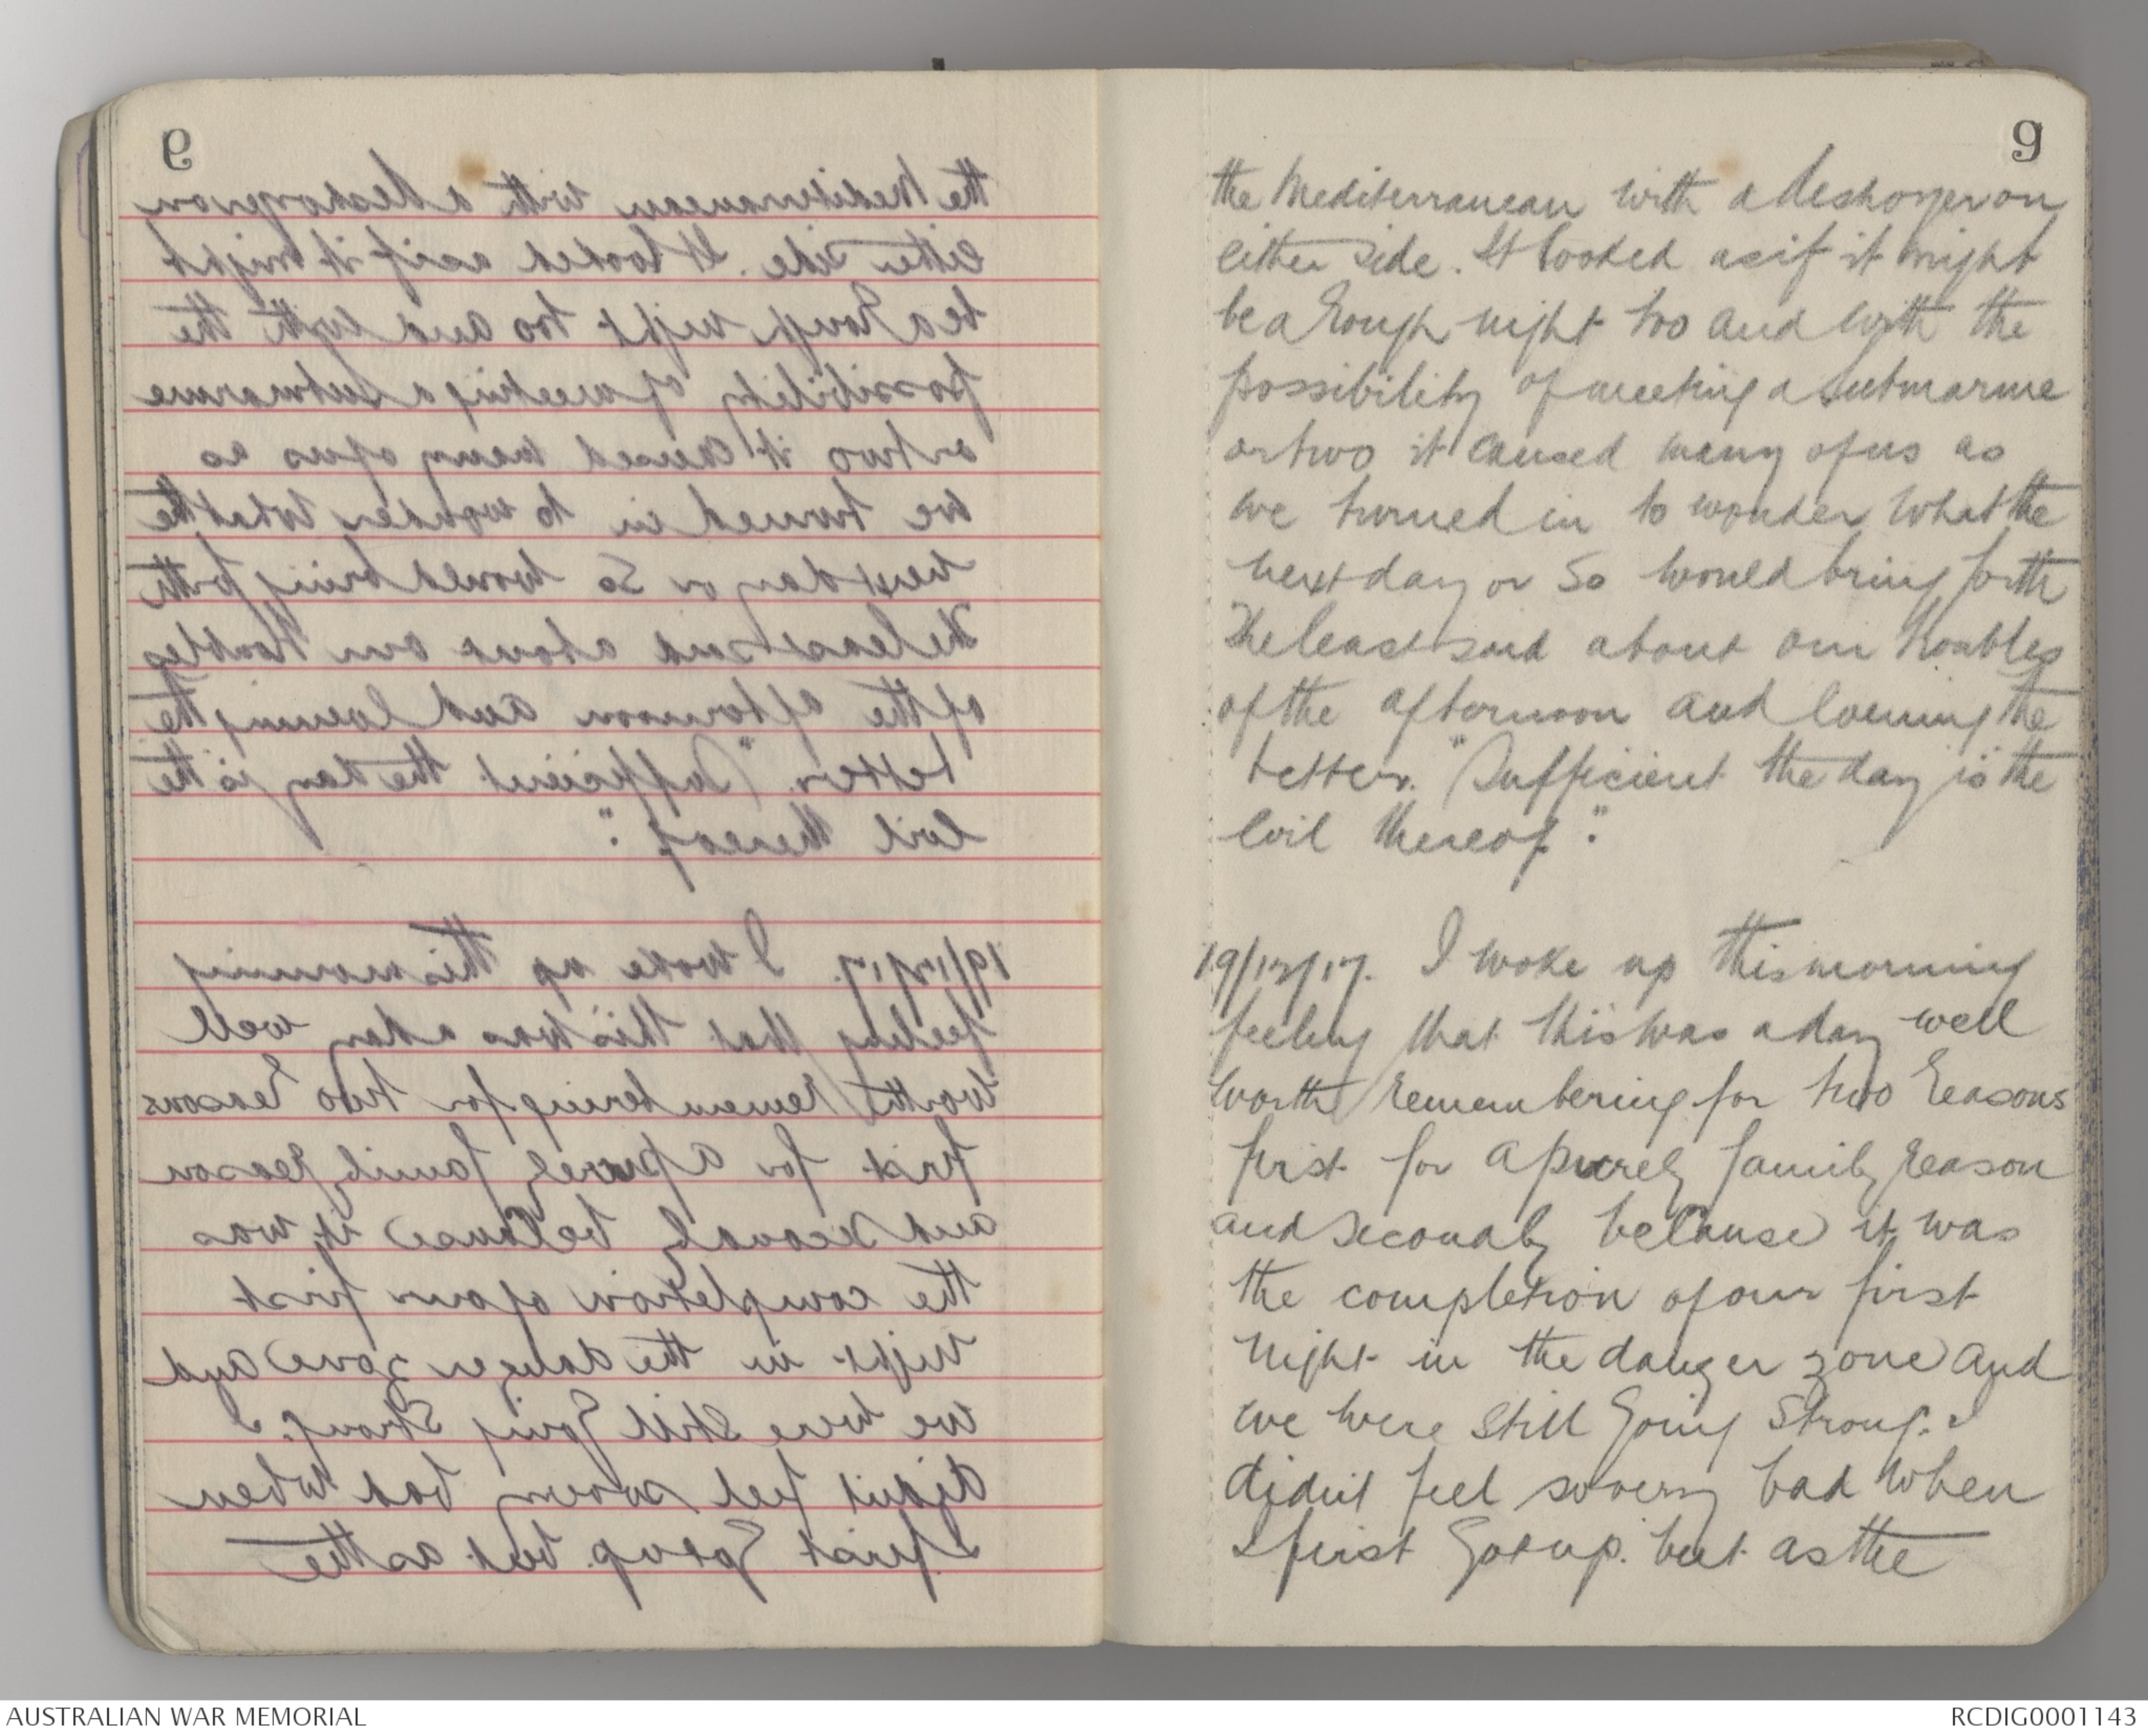 9
the Mediterranean with a destroyer on
either side. It looked as if it might
be a rough night too and with the
possibility of meeting a submarine
or two it caused many of us as
we turned in to wonder what the
next day or so would bring forth
The least said about our troubles
of the afternoon and evening the
better. "Sufficient the day is the
evil thereof".
19/12/17. I woke up this morning
feeling that this was a day well
worth remembering for two reasons
first for a purely family reason
and secondly because it was
the completion of our first
night in the danger zone and
we were still going strong. I
didnt feel so very bad when
I first got up. but as the
AUSTRALIAN WAR MEMORIAL
RCDIG0001143